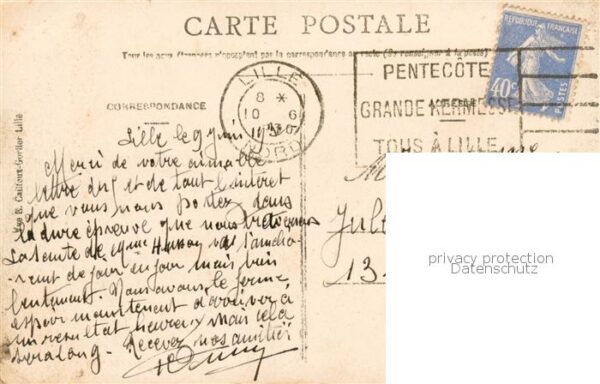 CARTE POSTALE
Tous les pays étrangers n'acceptent pas la correspondance au recto (Se renseigner à la poste)
CORRESPONDANCE
LILLE
8 *
10 6
30
NORD
PENTECÔTE
GRANDE KERMESSE
TOUS À LILLE
REPUBLIQUE FRANÇAISE
40c
POSTES
Lille le 9 juin 1930
Merci de votre aimable
lettre du 5 et de tout l'interet
que vous nous portez dans
la dure épreuve que nous
La santé de Mme va s'amelio-
rant de jour en jour mais bien
lentement. Nous avons le ferme
espoir maintenant d'arriver à
un resultat heureux mais cela
sera long. Recevez nos amitiés
Jul
13
Vve B. Cailteux-Gorlier Lille
privacy protection
Datenschutz